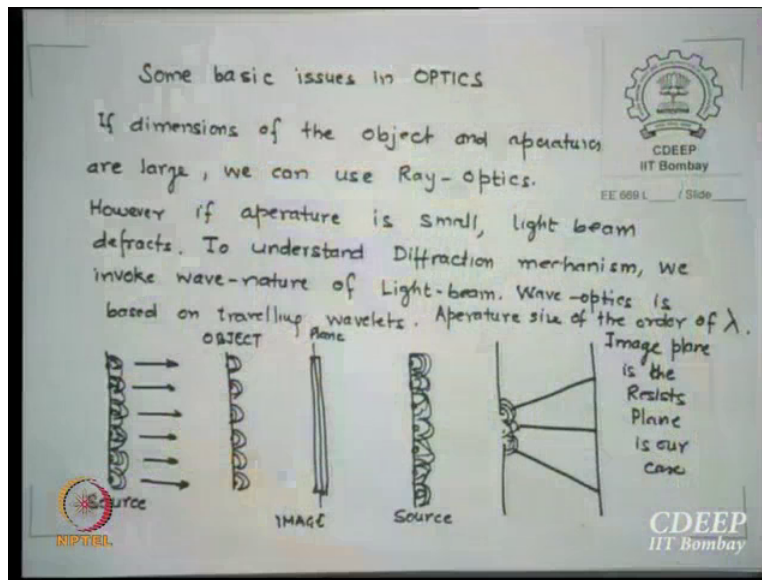 Some basic issues in OPTICS
CDEEP
IIT Bombay
EE 669 L ____ / Slide ____
If dimensions of the object and aparatures
are large, we can use Ray-optics.
However if aperature is small, light beam
defracts. To understand Diffraction mechanism, we
invoke wave-nature of Light-beam. Wave-optics is
based on travelling wavelets. Aperature size of the order of λ.
OBJECT
Plane
Image plane
is the
Resists
Plane
is our
case
Source
IMAGE
Source
NPTEL
CDEEP
IIT Bombay